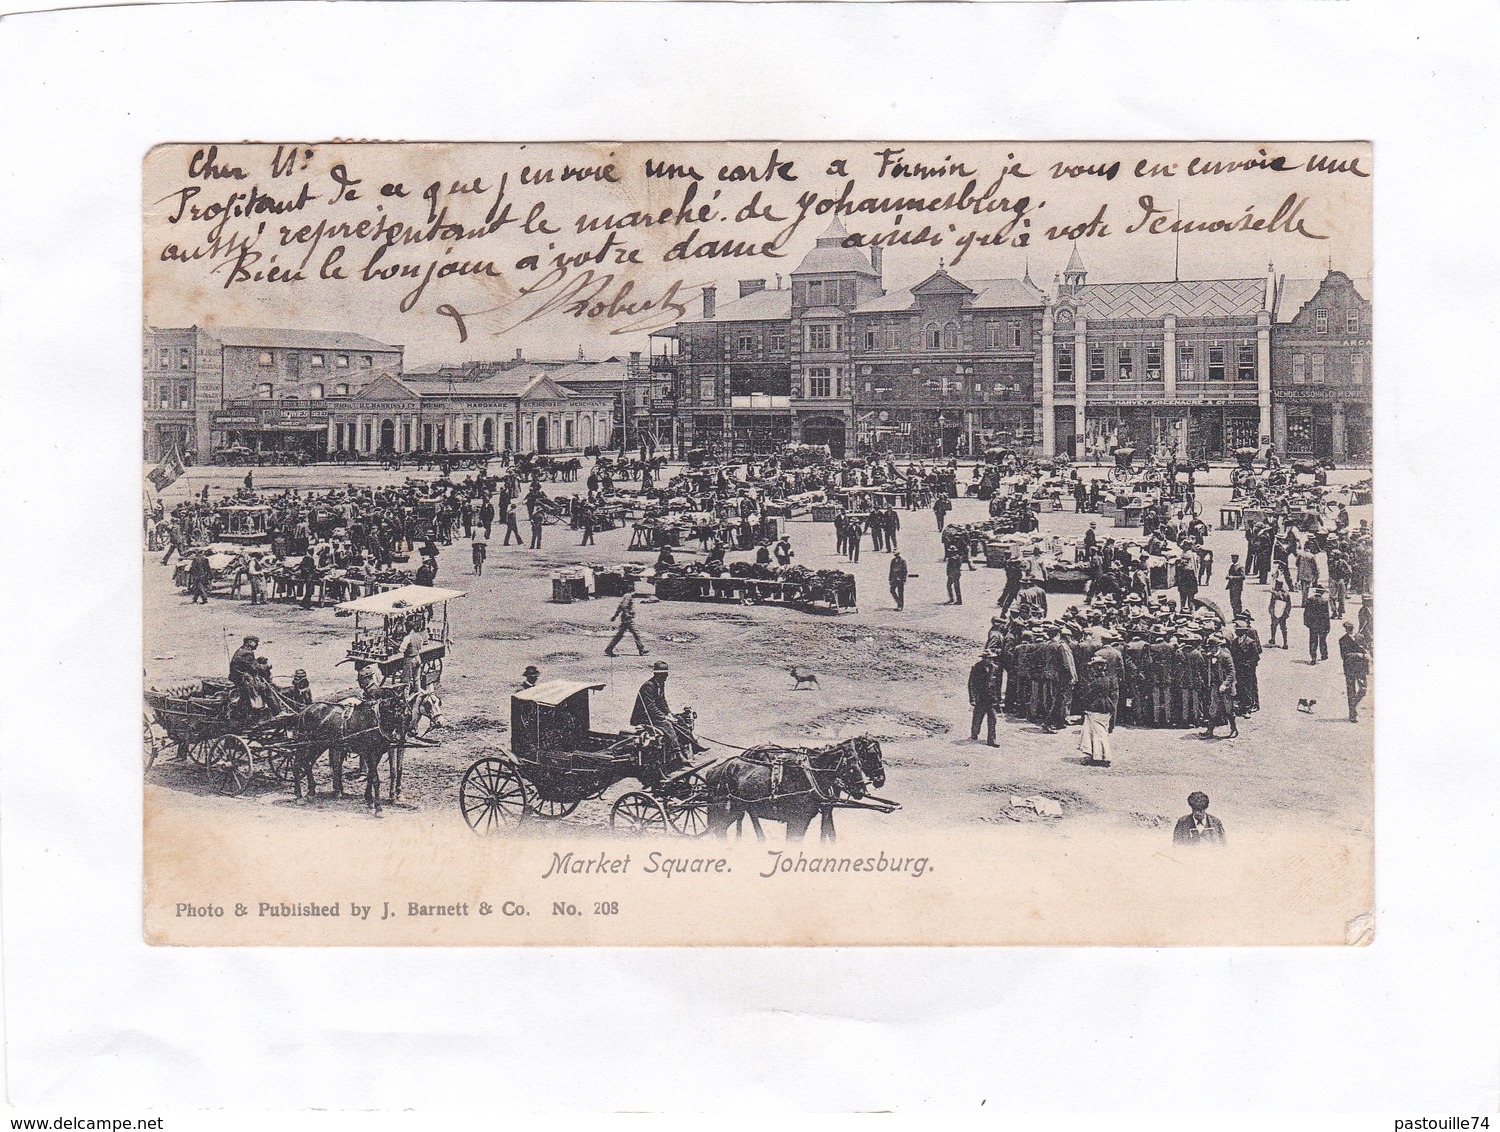 Cher Mr
Profitant de ce que j'envoie une carte a Firmin je vous en envoie une
aussi représentant le marché de Johannesburg.
Bien le bonjour à votre dame ainsi qu'à votre Demoiselle
Robert
HOWIES SEED
HARDWARE
HARVEY GREENACRE & Co
MENDELSSOHN &
ARCA
Market Square. Johannesburg.
Photo & Published by J. Barnett & Co. No. 208
delcampe.net
pastouille74